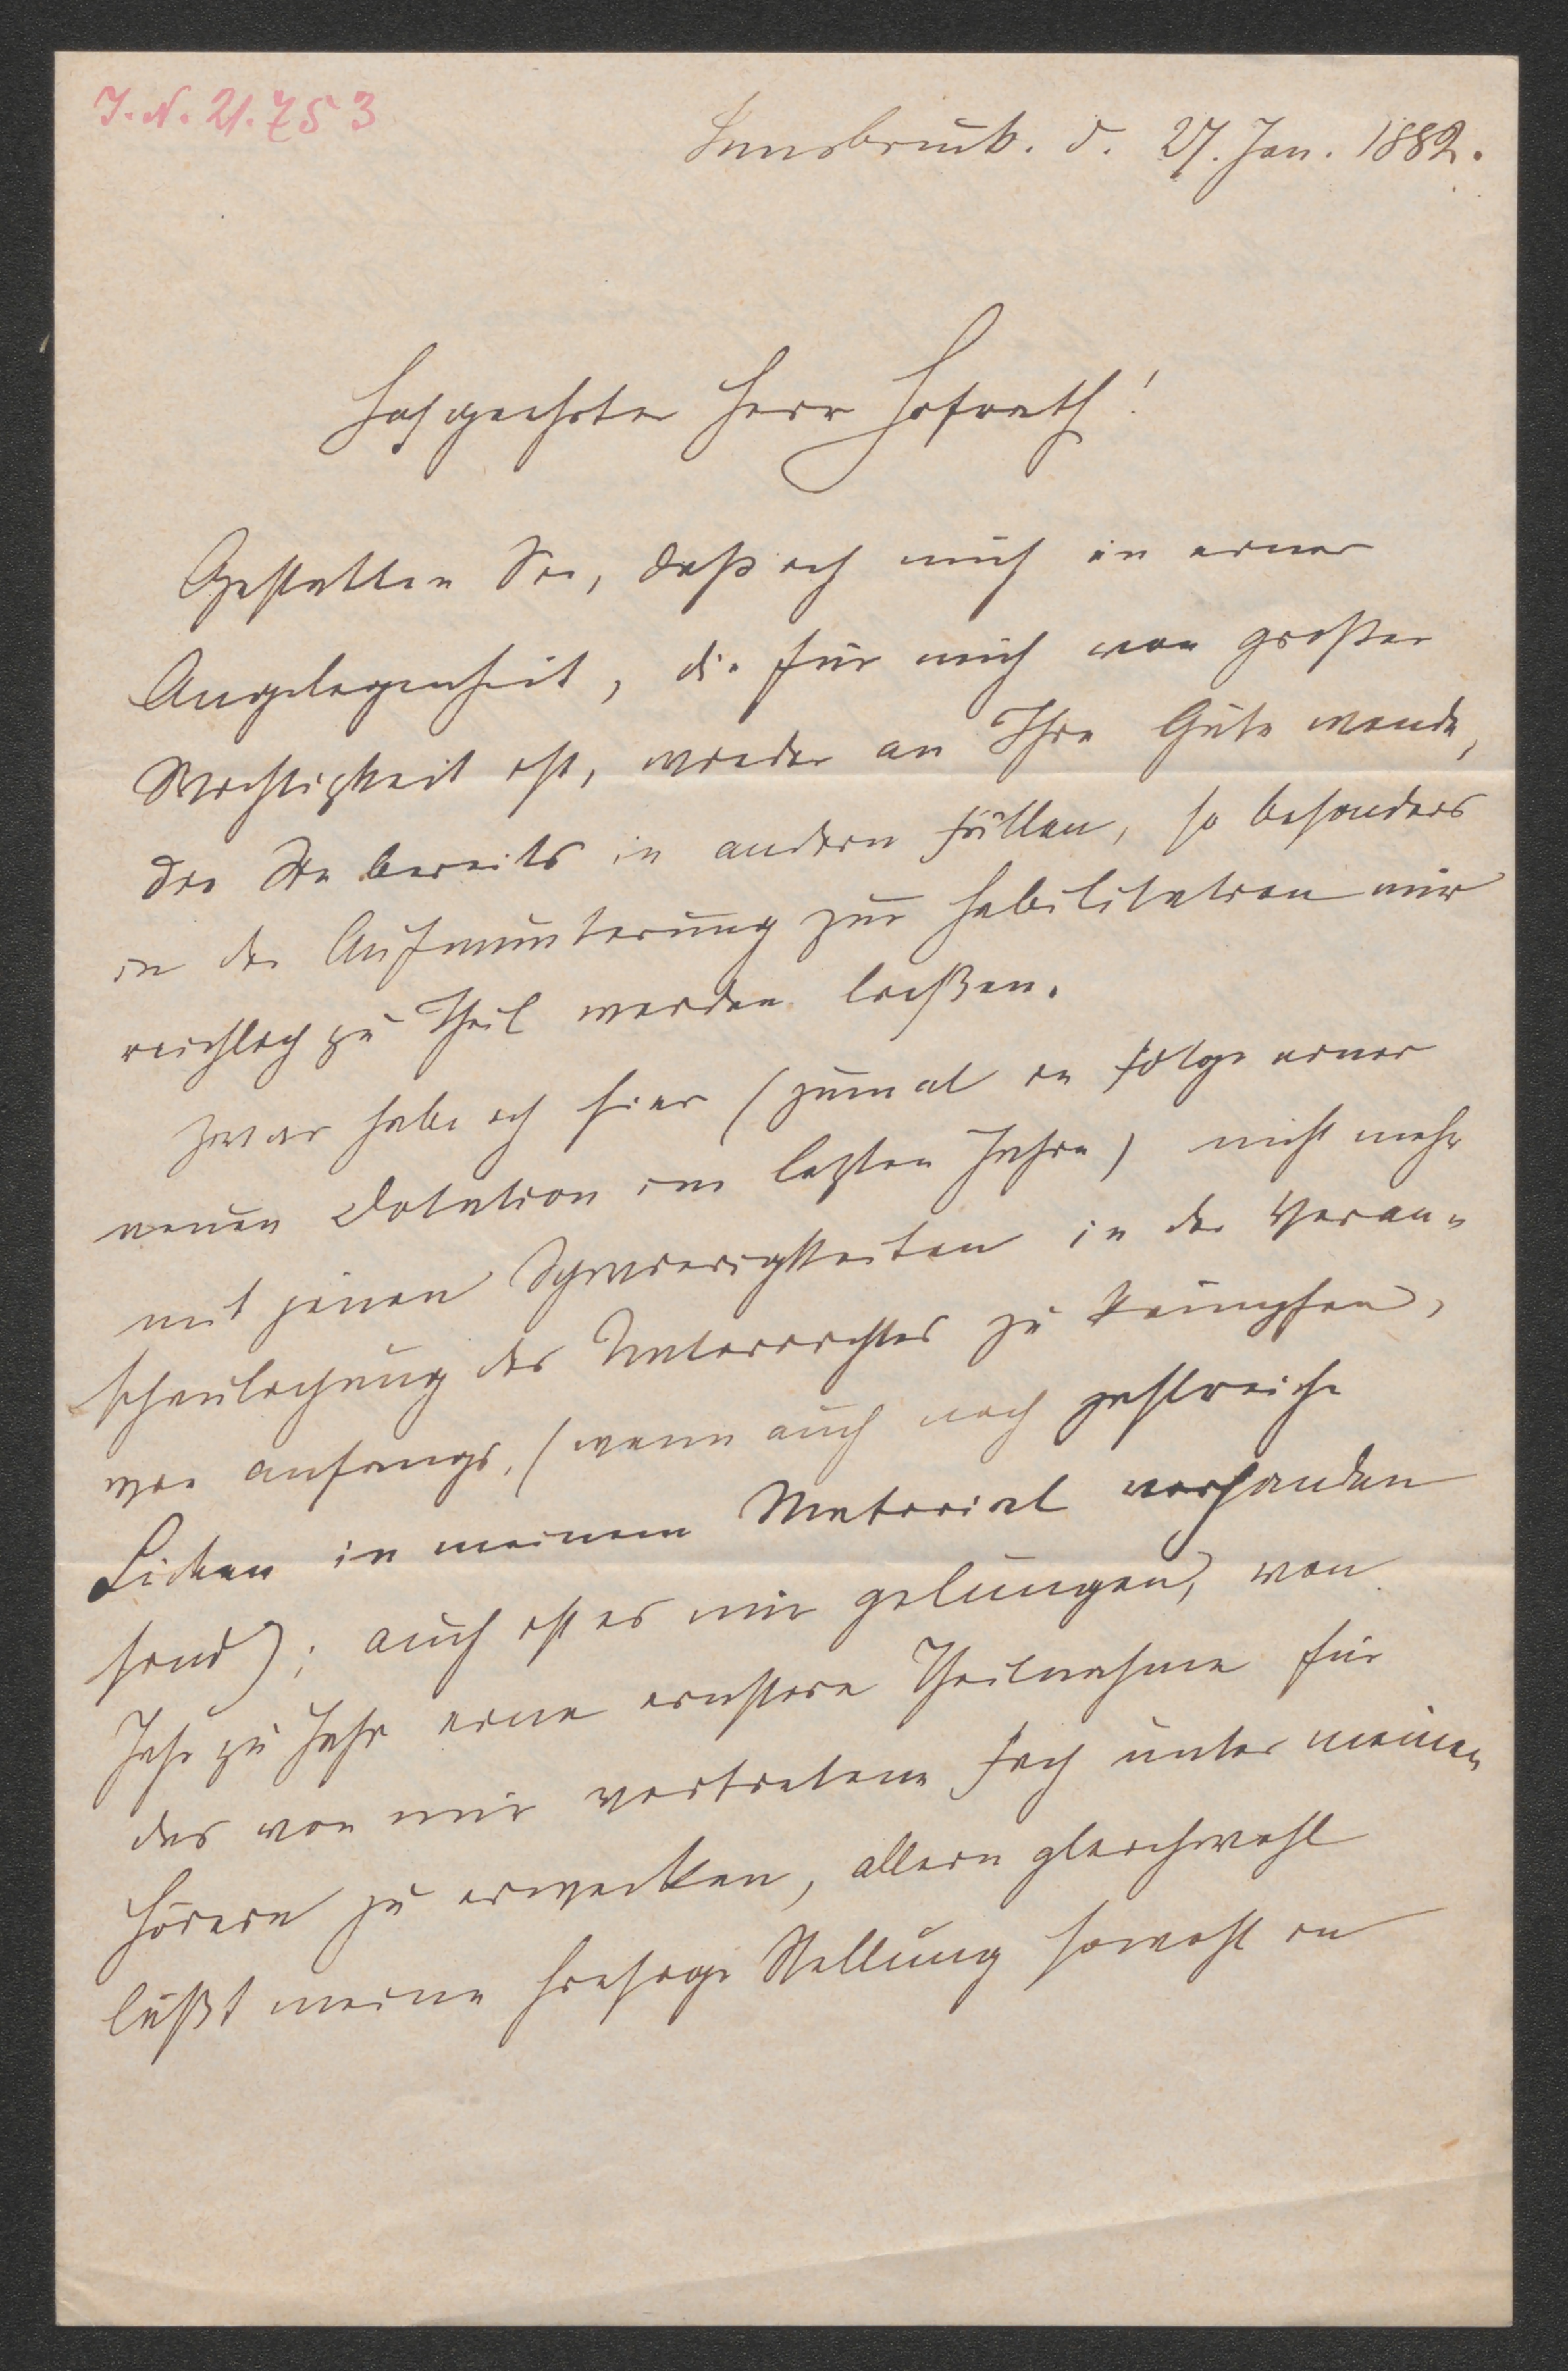 J.N. 21.753
Innsbruck. d. 27. Jan. 1882.
Hochgeehrter Herr Hofrath!
Gestatten Sie, daß ich mich in einer
Angelegenheit, die für mich von großer
Wichtigkeit ist, wieder an Ihre Güte wende,
die Sie bereits in andern Fällen, so besonders
in der Aufmunterung zur Habilitation mir
reichlich zu Theil werden ließen.
Zwar habe ich hier (zumal in Folge einer
neuen Dotation im letzten Jahre) nicht mehr
mit jenen Schwierigkeiten in der Veran-
schaulichung des Unterrichtes zu kämpfen,
wie anfangs, (wenn auch noch zahlreiche
Lücken in meinem Material vorhanden
sind); auch ist es mir gelungen, von
Jahr zu Jahr eine ernstere Theilnahme für
das von mir vertretene Fach unter meinen
Hörern zu erwecken, allein gleichwohl
läßt meine hiesige Stellung sowohl in